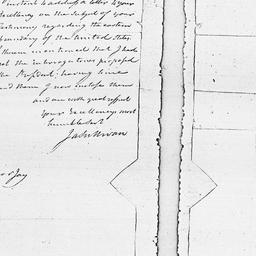 instant to address a letter to your
Excellency on the Subject of your
testimony regarding the eastern
boundary of the United States
I therein mentioned that I had
not the interrogatories proposed
the President; having since
and them I now inclose them
and am with great respect
your Excellencys most
humble Servt
Ja Sullivan
Jay